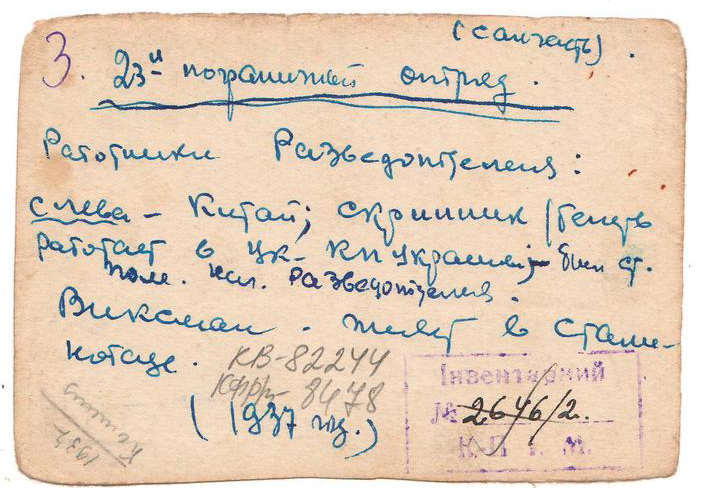 (санчасть).
3. 23й пограничный отряд.
Работники Разведотделения:
слева – Китай; скрипник (теперь
работает в цк- КП украины; – был ст.
пом. нач. разведотделения.
Виксман. живет в Стали-
нобаде.
КВ-82244
КФФ- 8478
(1937 год.)
1937
Інвентарний
№ 2646/2.
К. П. І. М.